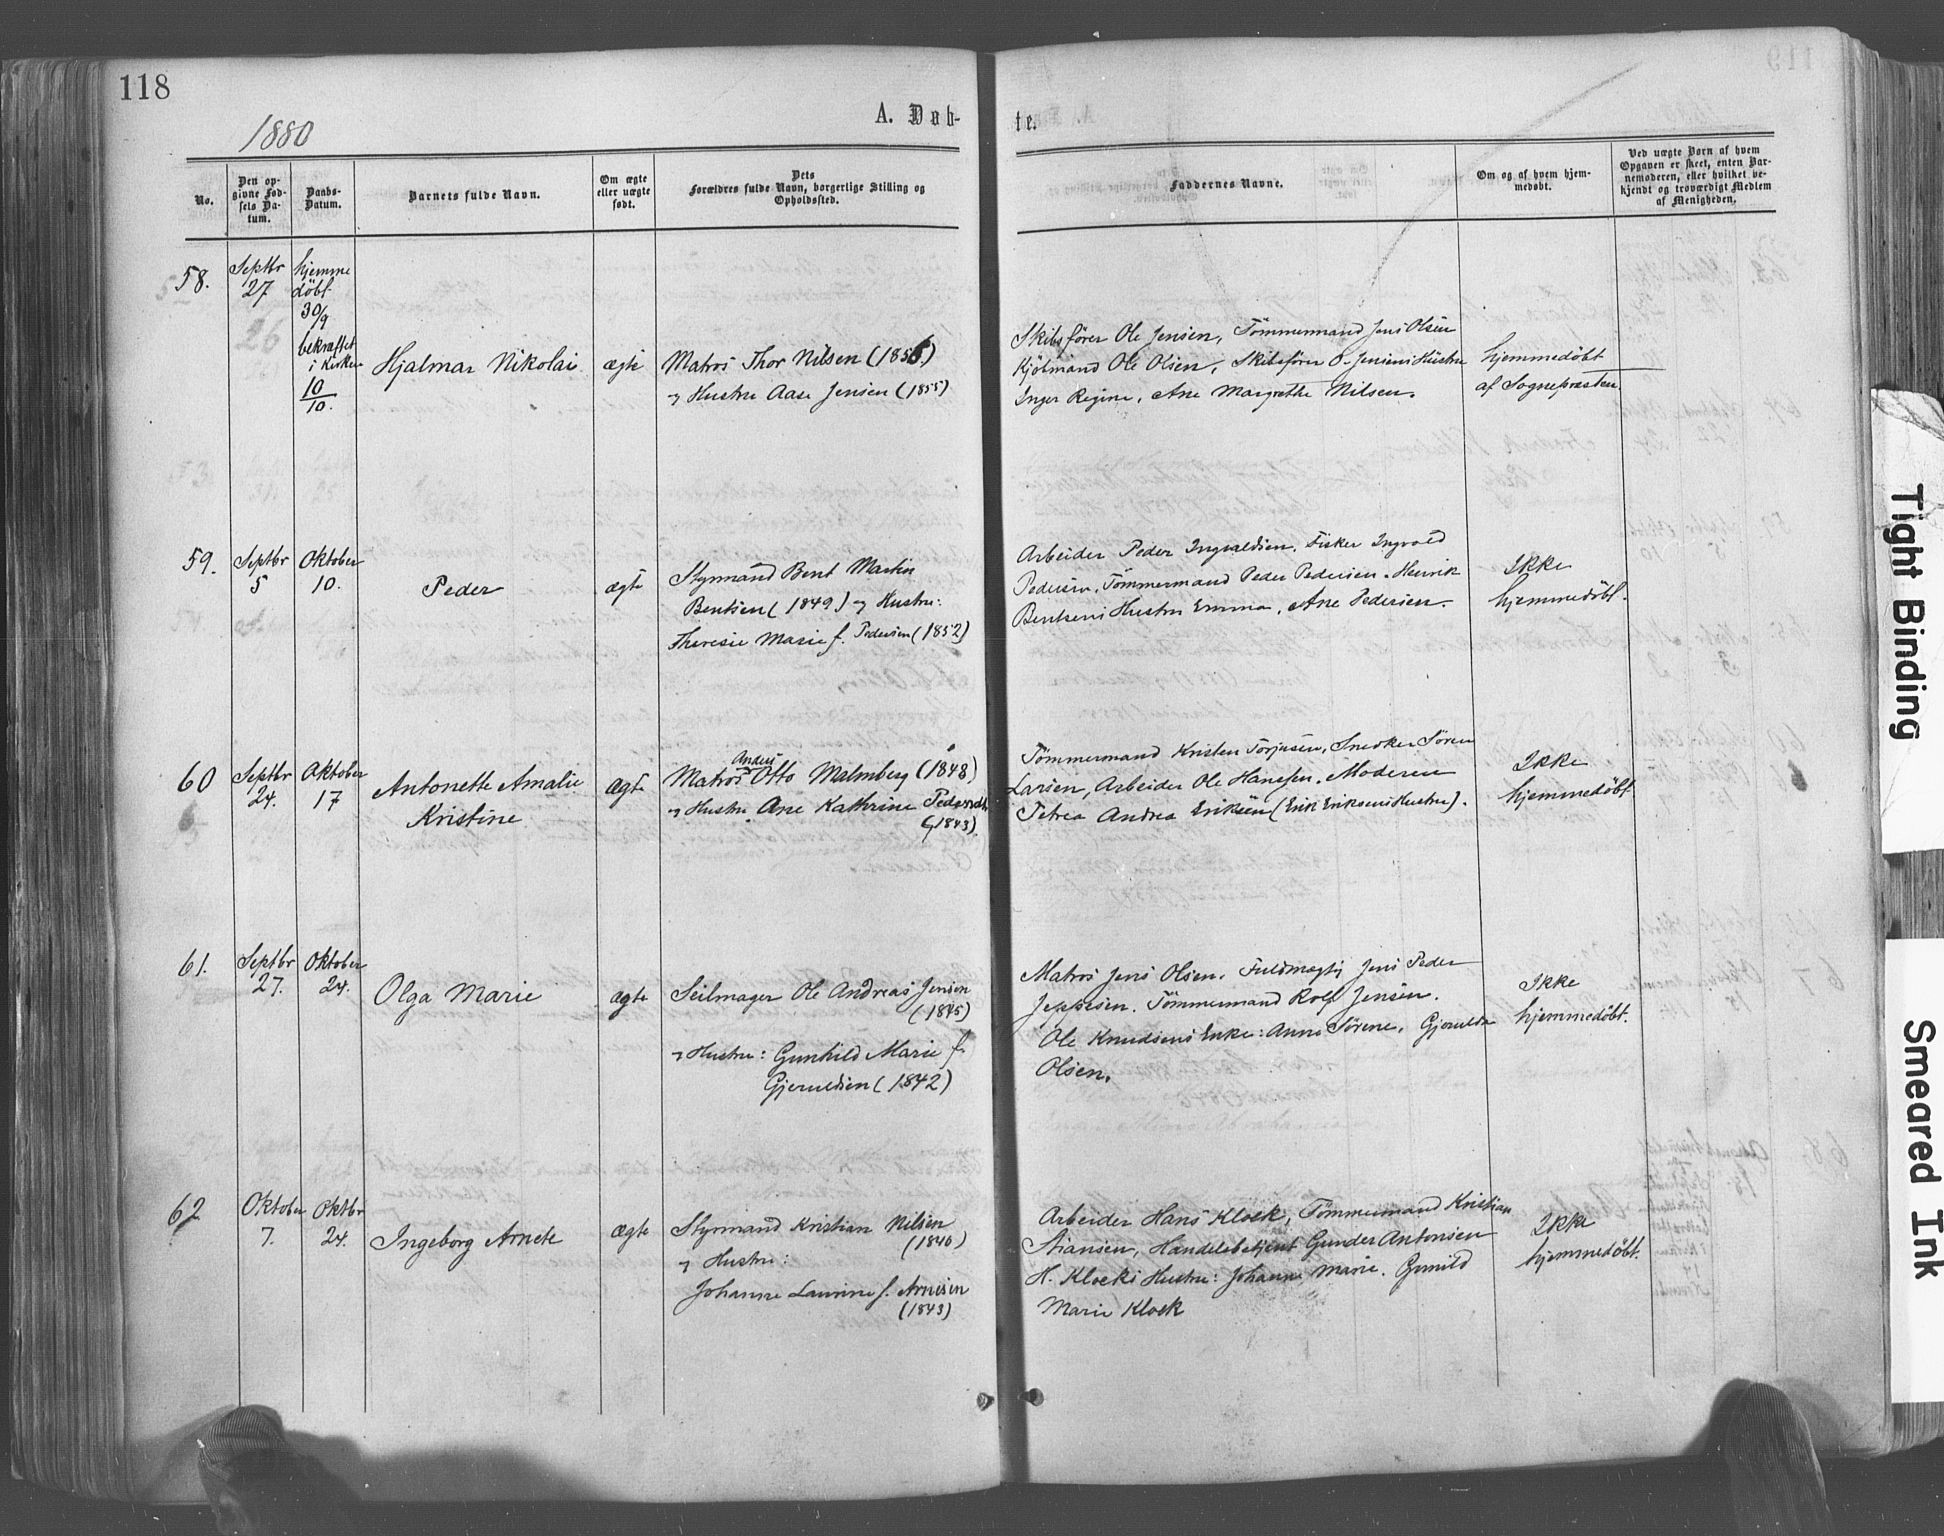 118
1880
A. Døb-
te.
No.
Den op-
givne Fød-
sels Da-
tum.
Daabs-
Datum.
Barnets fulde Navn.
Om ægte
eller uægte
født.
Dets
Forældres fulde Navn, borgerlige Stilling og
Opholdssted.
Faddernes Navne.
Om og af hvem hjem-
medøbt.
Ved uægte Børn af hvem
Opgaven er skeet, enten Bar-
nemoderen, eller hvilket be-
kjendt og troværdigt Medlem
af Menigheden.
58.
Septbr
27
hjemme
døbt
30/9
bekræftet
i Kirken
10
10.
Hjalmar Nikolai
ægte
Matros Thor Nilsen (1856)
og Hustru Aase Jensen (1855)
Skibsfører Ole Jensen, Tömmermand Jens Olsen
Kjöbmand Ole Olsen, Skibsfører O. Jensens Hustru
Inger Regine, Ane Margrethe Nilsen.
hjemmedøbt
af Sognepræsten
59.
Septbr
5
Oktober
10.
Peder
ægte
Styrmand Bent Martin
Bentsen (1849) og Hustru:
Theresie Marie f. Pedersen (1852)
Arbeider Peder Ingvaldsen, Fisker Ingvald
Pedersen, Tömmermand Peder Pedersen. Henrik
Bentsens Hustru Emma, Ane Pedersen.
Ikke
hjemmedøbt.
60
Septbr
24.
Oktober
17
Antonette Amalie
Kristine
ægte
Anders
Matros Otto Malmberg (1848)
og Hustru Ane Kathrine Pedersdtr
(1843).
Tömmermand Kristen Torjusen, Snedker Sören
Larsen, Arbeider Ole Hansen. Moderen
Petrea Andrea Eriksen (Erik Eriksens Hustru).
Ikke
hjemmedøbt
61.
Septbr
27.
Oktober
24.
Olga Marie
ægte
Seilmager Ole Andreas Jensen
(1845)
og Hustru: Gunhild Marie f.
Gjeruldsen (1842)
Matros Jens Olsen. Fuldmægtig Jens Peder
Jeppesen. Tömmermand Rolf Jensen.
Ole Knudsens Enke: Anne Sörene, Gjerulda
Olsen.
Ikke
hjemmedøbt.
62
Oktober
7.
Oktbr
24.
Ingeborg Arnete
ægte
Styrmand Kristian Nilsen
(1840)
og Hustru:
Johanne Laurine f. Arnesen
(1843)
Arbeider Hans Klock, Tömmermand Kristian
Stiansen, Handelsbetjent Gunder Antonsen
H. Klocks Hustru: Johanne Marie. Gunild
Marie Klock
Ikke
hjemmedøbt.
Tight Binding
Smeared Ink